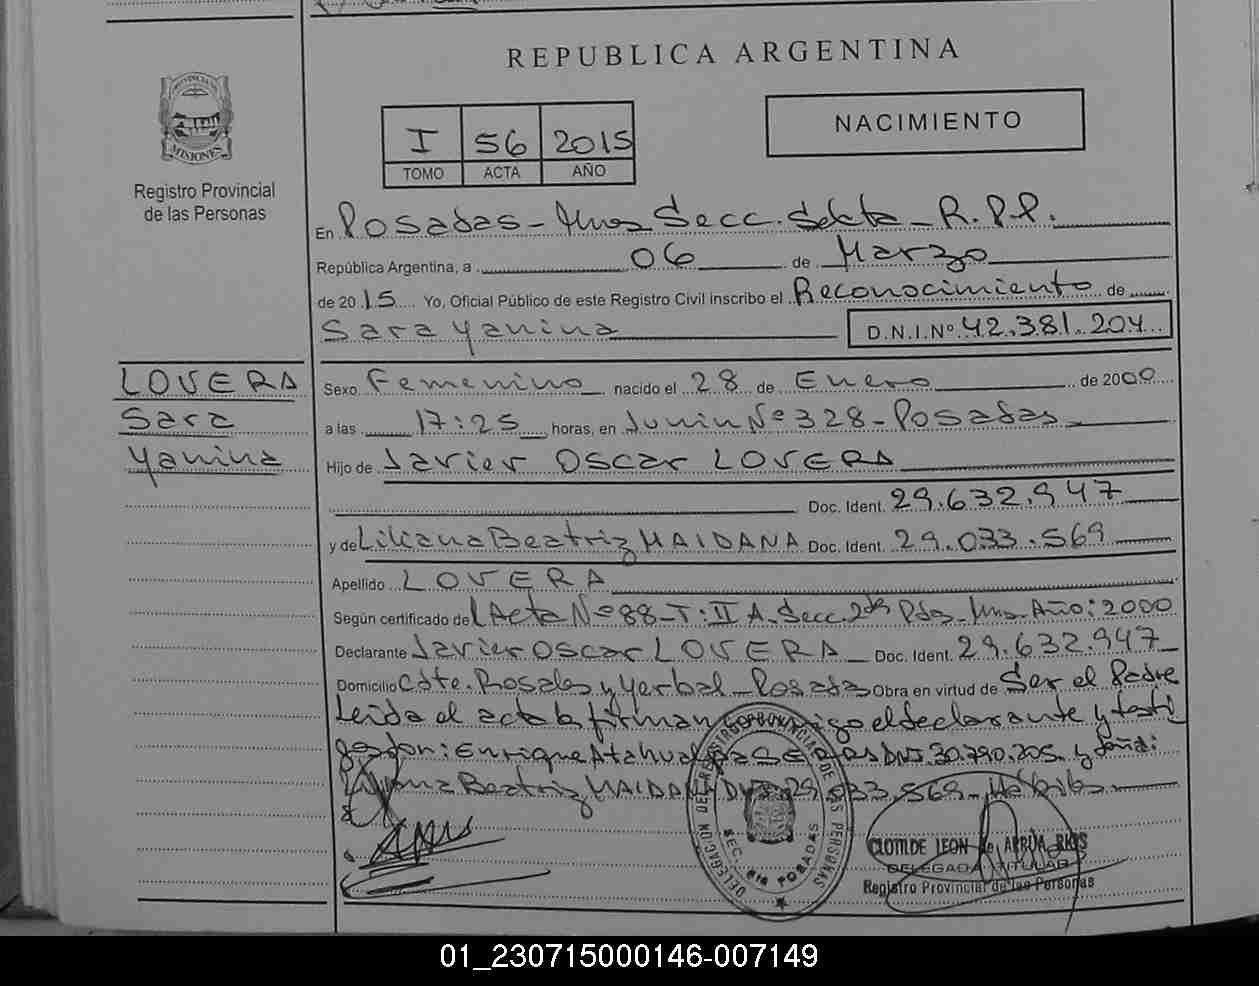 REPUBLICA ARGENTINA
PROVINCIA DE
MISIONES
Registro Provincial
de las Personas
I 56 2015
TOMO ACTA AÑO
NACIMIENTO
En Posadas - Mnes Secc. Sexta - R.P.P.
República Argentina, a 06 de Marzo
de 2015 Yo, Oficial Público de este Registro Civil inscribo el Reconocimiento de
Sara Yanina D.N.I.Nº 42.381.204
LOVERA
Sara
Yanina
Sexo Femenino nacido el 28 de Enero de 2000
a las 17:25 horas, en Junin Nº 328 - Posadas
Hijo de Javier Oscar LOVERA
Doc. Ident. 29.632.947
y de Liliana Beatriz MAIDANA Doc. Ident. 29.033.569
Apellido LOVERA
Según certificado de l Acta Nº 88 - T: II A - Secc. 2da Pdas - Mnes - Año: 2000
Declarante Javier Oscar LOVERA Doc. Ident. 29.632.947
Domicilio Cdte. Rosales y Yerbal - Posadas Obra en virtud de Ser el Padre
Leída el acta la firman conmigo el declarante y testi
gos don: Enrique Atahualpa DNI 30.790.205 y doña:
Liliana Beatriz MAIDANA DNI 29.033.569 - Hábiles
DELEGACION DEL REGISTRO PROVINCIAL DE LAS PERSONAS
SEC. 6ta POSADAS
CLOTILDE LEON de ARRUA RIOS
DELEGADA TITULAR
Registro Provincial de las Personas
01_230715000146-007149